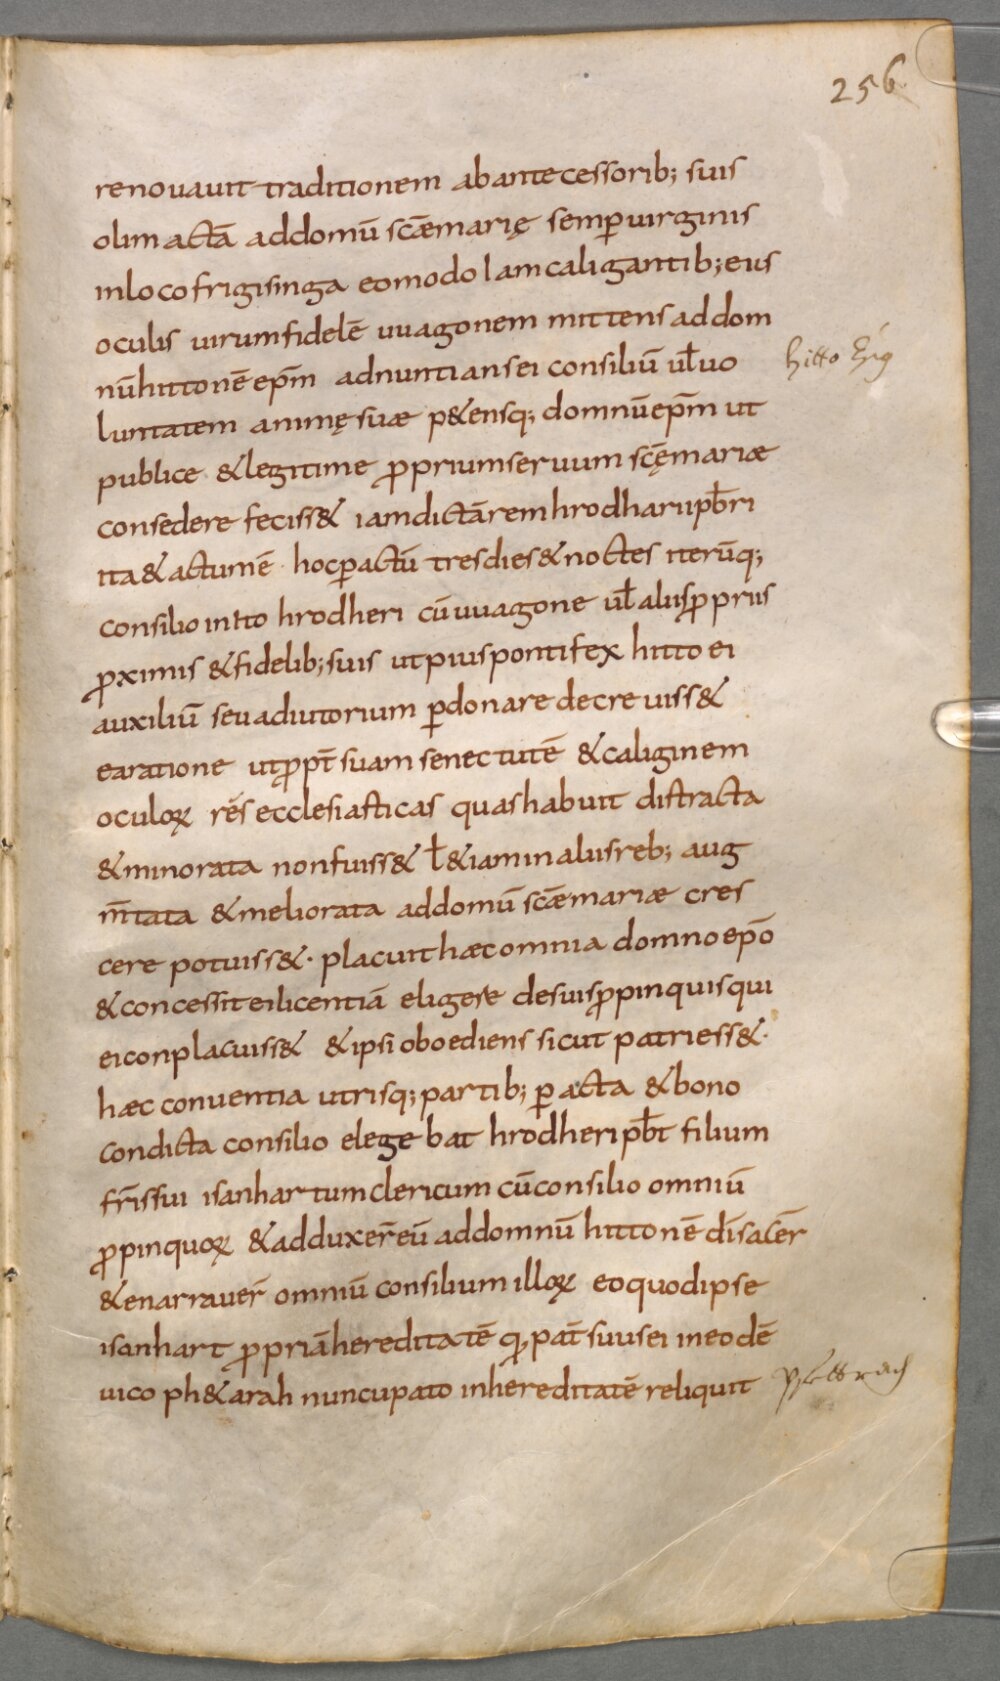 256
renouauit traditionem abantecessorib; suis
olim actā addomū scǣmarię semp̄uirginis
inloco frigisinga eomodo Iamcaligantib; eius
oculis uirumfidelē uuagonem mittens addom
nūhittonē ep̄m adnuntiansei consiliū uł uo
hitto
luntatem animę suæ p&ensq; domnūep̄m ut
publice &legitime ꝓpriumseruum scę̄mariæ
consedere feciss& iamdictārem hrodharii p̄bri
ita&actumē hocꝑactū tresdies&noctes iterūq;
consilio inito hrodheri cūuuagone uł aliisꝓpriis
ꝓximis &fidelib; suis utpiuspontifex hitto ei
auxiliū seuadiutorium ꝑdonare decreuiss&
earatione utꝓpt̄ suam senectutē &caliginem
oculoꝝ rēs ecclesiasticas quashabuit distracta
&minorata nonfuiss& ł &iaminaliisreb; aug
m̄tata &meliorata addomū scǣmariæ cres
cere potuiss&· placuit hæcomnia domnoep̄o
&concessit eilicentiā eligere desuisꝓpinquisqui
eiconplacuiss& &ipsi oboediens sicut patriess&·
hæc conuentia utrisq; partib; ꝑacta &bono
condicta consilio elegebat hrodheri p̄bt filium
fr̄issui isanhartum clericum cūconsilio omniū
ꝓpinquoꝝ &adduxer̄eū addomnū hittonē dīsacēr
&enarrauer̄ omniū consilium illoꝝ eoquodipse
isanhart ꝓpriāhereditatē q; pat̄ suusei ineodē
uico ph&arah nuncupato inhereditatē reliquit
Pfettrach